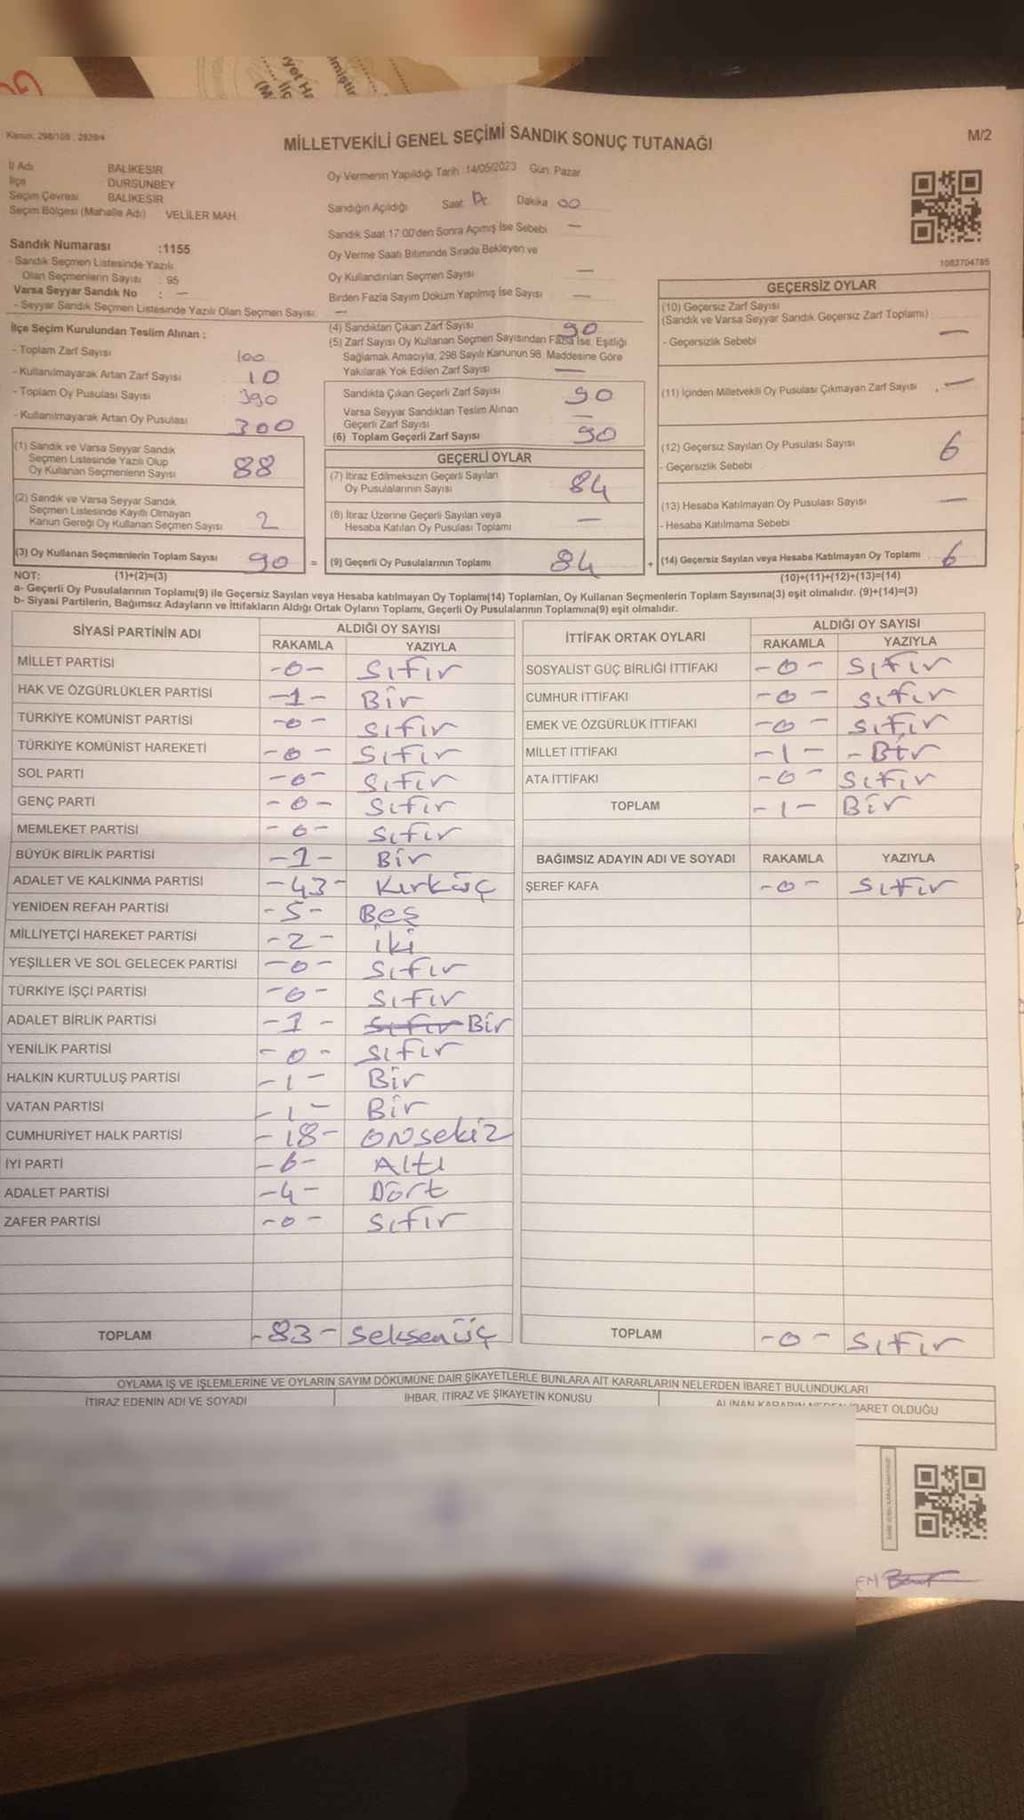 Kanun: 298/105 , 2839/4
MİLLETVEKİLİ GENEL SEÇİMİ SANDIK SONUÇ TUTANAĞI
M/2
İl Adı BALIKESİR
İlçe DURSUNBEY
Seçim Çevresi BALIKESİR
Seçim Bölgesi (Mahalle Adı) VELİLER MAH.
Oy Vermenin Yapıldığı Tarih :14/05/2023 Gün: Pazar
Sandığın Açıldığı Saat Dakika 00
Sandık Saat 17:00'den Sonra Açılmış İse Sebebi —
Oy Verme Saati Bitiminde Sırada Bekleyen ve
Oy Kullandırılan Seçmen Sayısı —
Birden Fazla Sayım Döküm Yapılmış İse Sayısı —
1082704785
Sandık Numarası :1155
- Sandık Seçmen Listesinde Yazılı
Olan Seçmenlerin Sayısı : 95
Varsa Seyyar Sandık No : —
- Seyyar Sandık Seçmen Listesinde Yazılı Olan Seçmen Sayısı: —
İlçe Seçim Kurulundan Teslim Alınan ;
- Toplam Zarf Sayısı 100
- Kullanılmayarak Artan Zarf Sayısı 10
- Toplam Oy Pusulası Sayısı 390
- Kullanılmayarak Artan Oy Pusulası 300
(1) Sandık ve Varsa Seyyar Sandık
Seçmen Listesinde Yazılı Olup
Oy Kullanan Seçmenlerin Sayısı 88
(2) Sandık ve Varsa Seyyar Sandık
Seçmen Listesinde Kayıtlı Olmayan
Kanun Gereği Oy Kullanan Seçmen Sayısı 2
(3) Oy Kullanan Seçmenlerin Toplam Sayısı 90
(1)+(2)=(3)
(4) Sandıktan Çıkan Zarf Sayısı 90
(5) Zarf Sayısı Oy Kullanan Seçmen Sayısından Fazla İse, Eşitliği
Sağlamak Amacıyla, 298 Sayılı Kanunun 98. Maddesine Göre
Yakılarak Yok Edilen Zarf Sayısı —
Sandıkta Çıkan Geçerli Zarf Sayısı 90
Varsa Seyyar Sandıktan Teslim Alınan
Geçerli Zarf Sayısı —
(6) Toplam Geçerli Zarf Sayısı 90
GEÇERLİ OYLAR
(7) İtiraz Edilmeksizin Geçerli Sayılan
Oy Pusulalarının Sayısı 84
(8) İtiraz Üzerine Geçerli Sayılan veya
Hesaba Katılan Oy Pusulası Toplamı —
= (9) Geçerli Oy Pusulalarının Toplamı 84
GEÇERSİZ OYLAR
(10) Geçersiz Zarf Sayısı
(Sandık ve Varsa Seyyar Sandık Geçersiz Zarf Toplamı) —
- Geçersizlik Sebebi
(11) İçinden Milletvekili Oy Pusulası Çıkmayan Zarf Sayısı . —
(12) Geçersiz Sayılan Oy Pusulası Sayısı 6
- Geçersizlik Sebebi
(13) Hesaba Katılmayan Oy Pusulası Sayısı —
- Hesaba Katılmama Sebebi
+ (14) Geçersiz Sayılan veya Hesaba Katılmayan Oy Toplamı 6
(10)+(11)+(12)+(13)=(14)
NOT:
a- Geçerli Oy Pusulalarının Toplamı(9) ile Geçersiz Sayılan veya Hesaba katılmayan Oy Toplamı(14) Toplamları, Oy Kullanan Seçmenlerin Toplam Sayısına(3) eşit olmalıdır. (9)+(14)=(3)
b- Siyasi Partilerin, Bağımsız Adayların ve İttifakların Aldığı Ortak Oyların Toplamı, Geçerli Oy Pusulalarının Toplamına(9) eşit olmalıdır.
SİYASİ PARTİNİN ADI ALDIĞI OY SAYISI
RAKAMLA YAZIYLA
MİLLET PARTİSİ -0- Sıfır
HAK VE ÖZGÜRLÜKLER PARTİSİ -1- Bir
TÜRKİYE KOMÜNİST PARTİSİ -0- Sıfır
TÜRKİYE KOMÜNİST HAREKETİ -0- Sıfır
SOL PARTİ -0- Sıfır
GENÇ PARTİ -0- Sıfır
MEMLEKET PARTİSİ -0- Sıfır
BÜYÜK BİRLİK PARTİSİ -1- Bir
ADALET VE KALKINMA PARTİSİ -43- Kırküç
YENİDEN REFAH PARTİSİ -5- Beş
MİLLİYETÇİ HAREKET PARTİSİ -2- iki
YEŞİLLER VE SOL GELECEK PARTİSİ -0- Sıfır
TÜRKİYE İŞÇİ PARTİSİ -0- Sıfır
ADALET BİRLİK PARTİSİ -1- Sıfır Bir
YENİLİK PARTİSİ -0- Sıfır
HALKIN KURTULUŞ PARTİSİ -1- Bir
VATAN PARTİSİ -1- Bir
CUMHURİYET HALK PARTİSİ -18- Onsekiz
İYİ PARTİ -6- Altı
ADALET PARTİSİ -4- Dört
ZAFER PARTİSİ -0- Sıfır
TOPLAM -83- Seksenüç
İTTİFAK ORTAK OYLARI ALDIĞI OY SAYISI
RAKAMLA YAZIYLA
SOSYALİST GÜÇ BİRLİĞİ İTTİFAKI -0- Sıfır
CUMHUR İTTİFAKI -0- Sıfır
EMEK VE ÖZGÜRLÜK İTTİFAKI -0- Sıfır
MİLLET İTTİFAKI -1- -Bir
ATA İTTİFAKI -0- Sıfır
TOPLAM -1- Bir
BAĞIMSIZ ADAYIN ADI VE SOYADI RAKAMLA YAZIYLA
ŞEREF KAFA -0- Sıfır
TOPLAM -0- Sıfır
OYLAMA İŞ VE İŞLEMLERİNE VE OYLARIN SAYIM DÖKÜMÜNE DAİR ŞİKAYETLERLE BUNLARA AİT KARARLARIN NELERDEN İBARET BULUNDUKLARI
İTİRAZ EDENİN ADI VE SOYADI İHBAR, İTİRAZ VE ŞİKAYETİN KONUSU ALINAN KARARIN NEDEN İBARET OLDUĞU